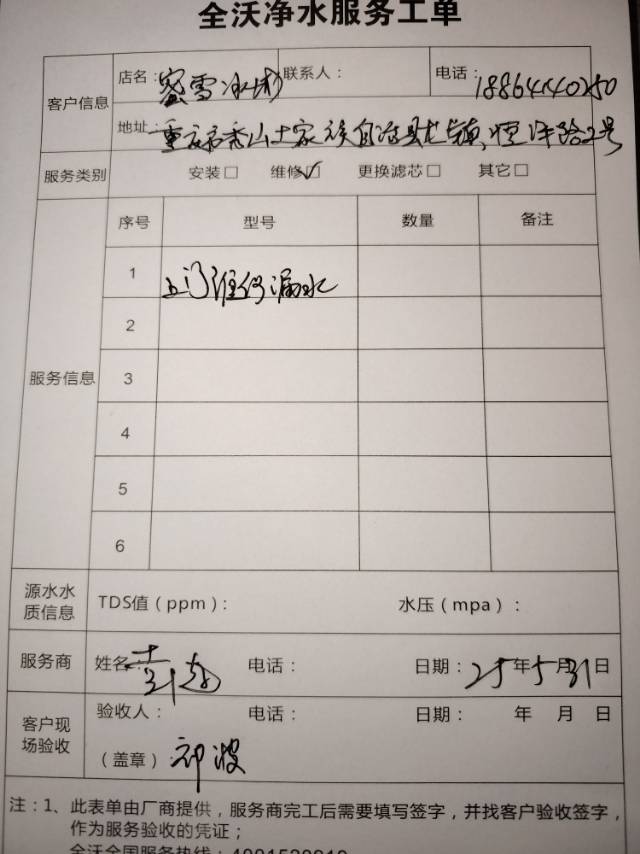 全沃净水服务工单
客户信息
店名：蜜雪冰城 联系人： 电话：18864140250
地址：重庆市秀山土家族自治县龙镇，恒洋路2号
服务类别 安装□ 维修☑ 更换滤芯□ 其它□
服务信息
序号 型号 数量 备注
1 上门维修漏水
2
3
4
5
6
源水水质信息 TDS值（ppm）： 水压（mpa）：
服务商 姓名： 电话： 日期：25年5月31日
客户现场验收
验收人： 电话： 日期： 年 月 日
（盖章）祁波
注：1、此表单由厂商提供，服务商完工后需要填写签字，并找客户验收签字，
作为服务验收的凭证；